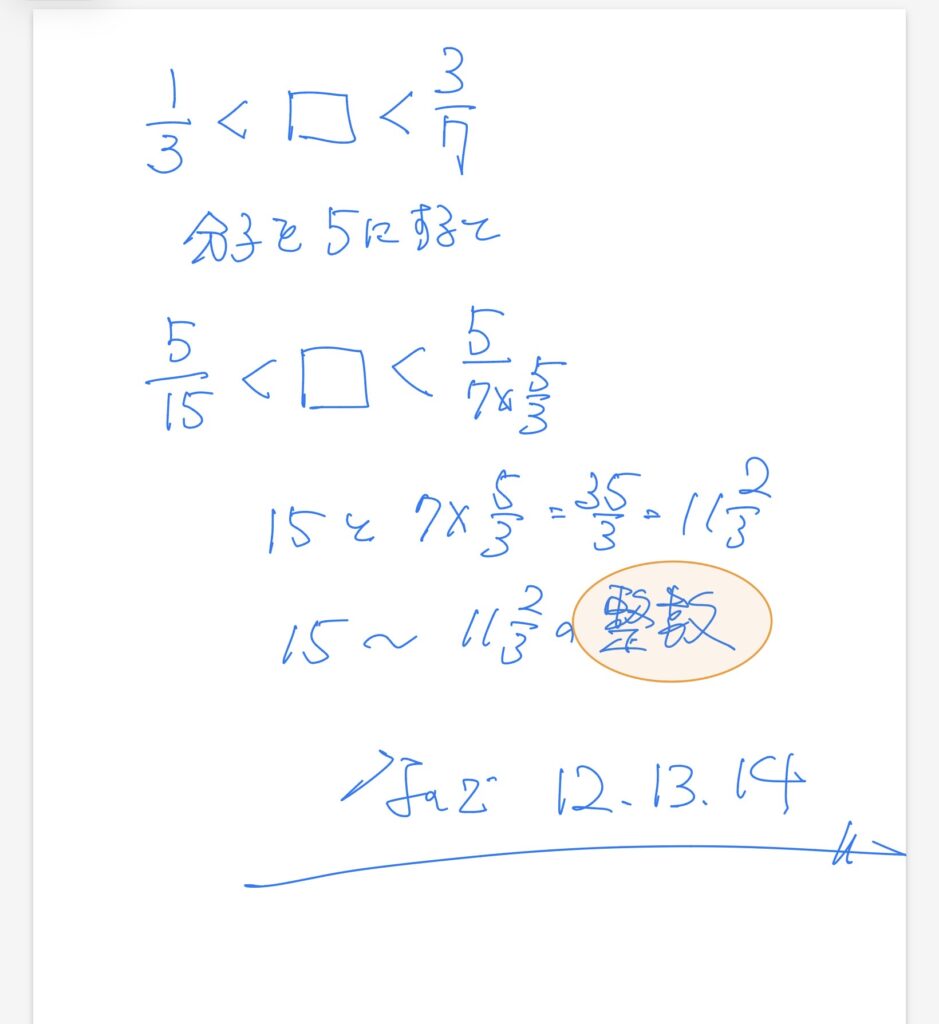 1/3 < □ < 3/7
分子を5にすると
5/15 < □ < 5/(7×5/3)
15と 7×5/3 = 35/3 = 11 2/3
15 〜 11 2/3 の 整数
なので 12. 13. 14